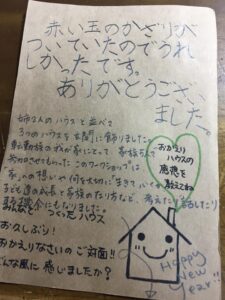 赤い玉のかざりが
ついていたのでうれ
しかったです。
ありがとうござい
ました。
姉さんのハウスと並べて
3つのハウスを玄関に飾りました。
転勤族のわが家にとって 家族5人で
参加させてもらった このワークショップは
家への想いや何を大切に「生きて
子ども達の成長と家族のなり方など、考えたり 話したり
機会にもなりました。
おかえり
ハウスの
感想を
教えてね
みんなで つくったハウス
お久しぶり!
おかえりなさいの ご対面!!
どんな風に 感じましたか?
Happy
New
Year!!